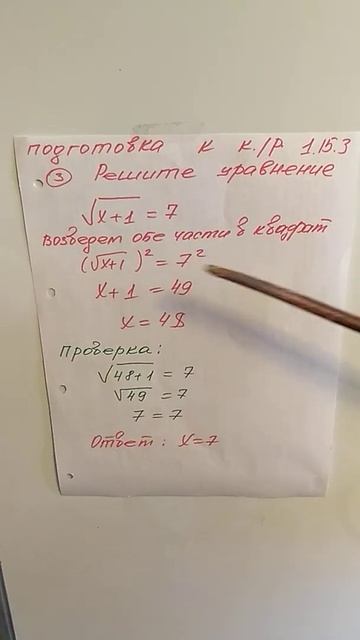 подготовка к к./р 1.15.3
③ Решите уравнение
√x+1 = 7
Возведем обе части в квадрат
(√x+1)² = 7²
x+1 = 49
x = 48
Проверка:
√48+1 = 7
√49 = 7
7 = 7
Ответ: x=7